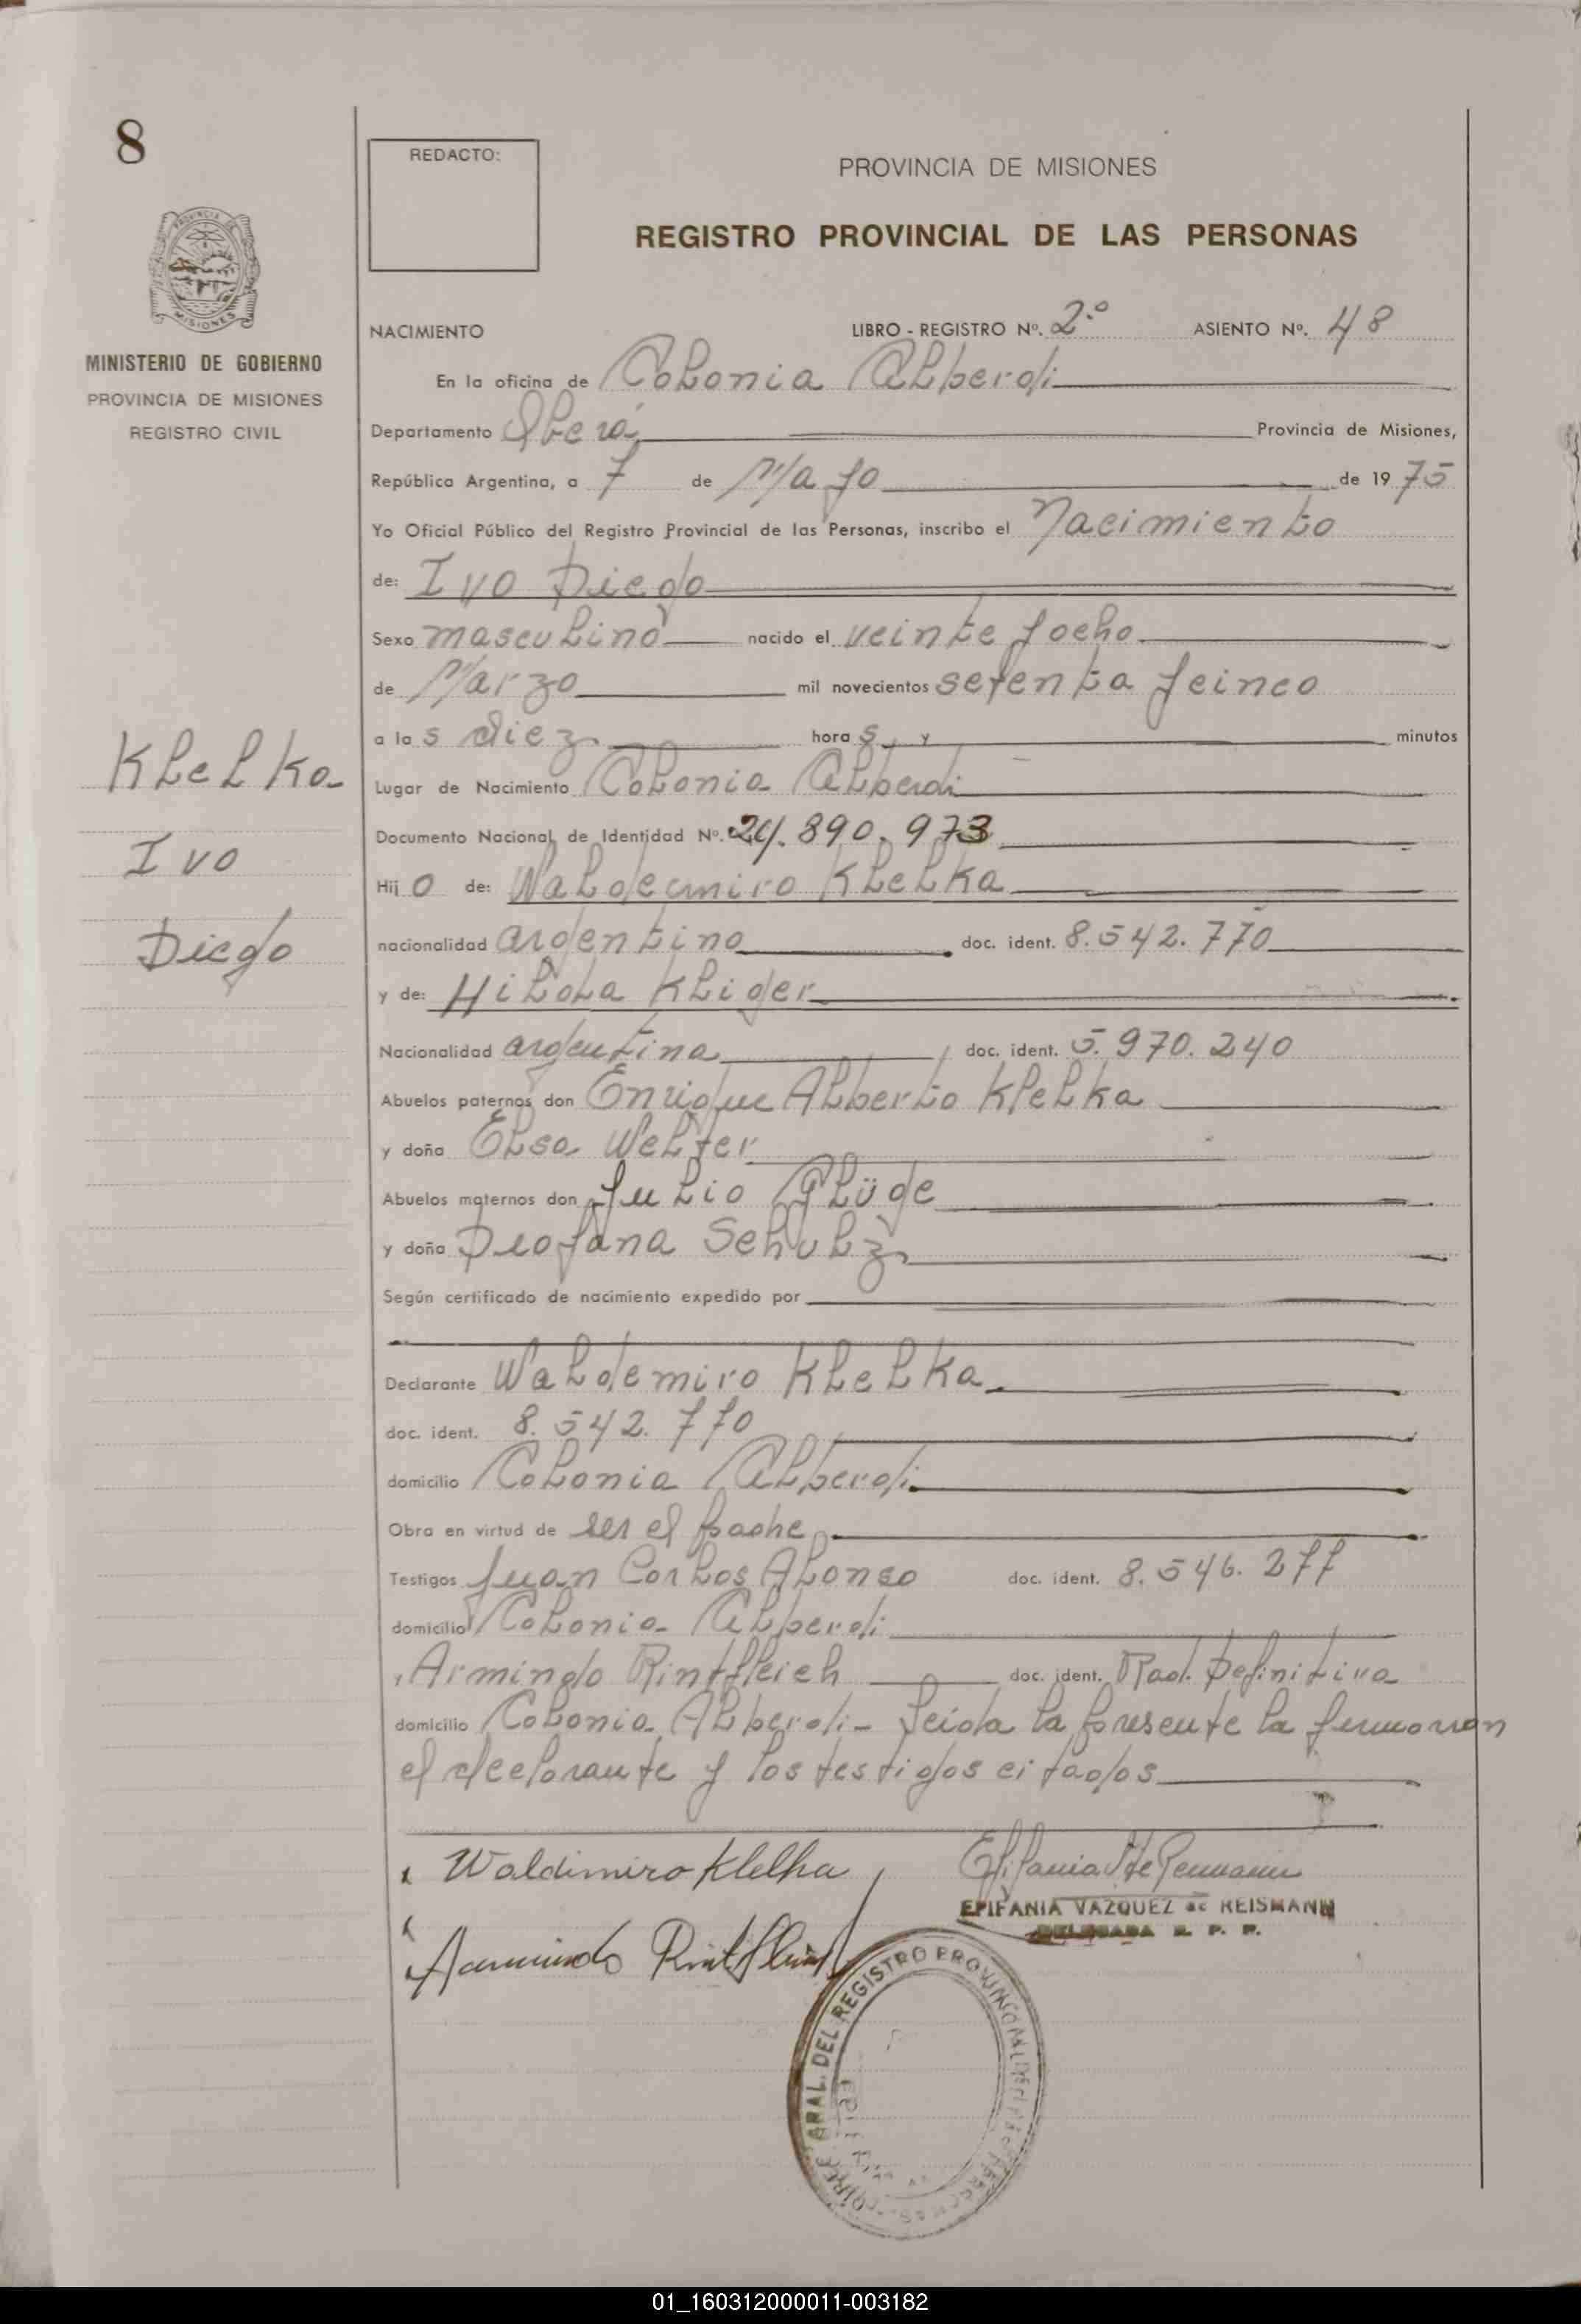 8
REDACTO:
PROVINCIA DE MISIONES
REGISTRO PROVINCIAL DE LAS PERSONAS
MINISTERIO DE GOBIERNO
PROVINCIA DE MISIONES
REGISTRO CIVIL
NACIMIENTO LIBRO - REGISTRO Nº. 2º ASIENTO Nº. 48
En la oficina de Colonia Alberdi
Departamento Oberá Provincia de Misiones,
República Argentina, a 7 de Mayo de 1975
Yo Oficial Público del Registro Provincial de las Personas, inscribo el Nacimiento
de: Ivo Diego
Sexo masculino nacido el veinte y ocho
de Marzo mil novecientos setenta y cinco
a las diez horas y minutos
Klelka
Ivo
Diego
Lugar de Nacimiento Colonia Alberdi
Documento Nacional de Identidad Nº. 24.890.973
Hijo de: Waldemiro Klelka
nacionalidad argentino doc. ident. 8.542.770
y de: Hilda Kliger
Nacionalidad argentina doc. ident. 5.970.240
Abuelos paternos don Enrique Alberto Klelka
y doña Elsa Welter
Abuelos maternos don Julio Glüge
y doña Schulz
Según certificado de nacimiento expedido por
Declarante Waldemiro Klelka
doc. ident. 8.542.770
domicilio Colonia Alberdi
Obra en virtud de ser el padre
Testigos Juan Carlos Alonso doc. ident. 8.546.277
domicilio Colonia Alberdi
Armindo Rintfleich doc. ident. Rad. Definitiva
domicilio Colonia Alberdi - Leida la presente la firmaron
el declarante y los testigos citados
Waldimiro Klelka
EPIFANIA VAZQUEZ de REISMANN
DELEGADA R. P. P.
Armindo
DIREC. GRAL. DEL REGISTRO PROVINCIAL DE LAS PERSONAS
01_160312000011-003182